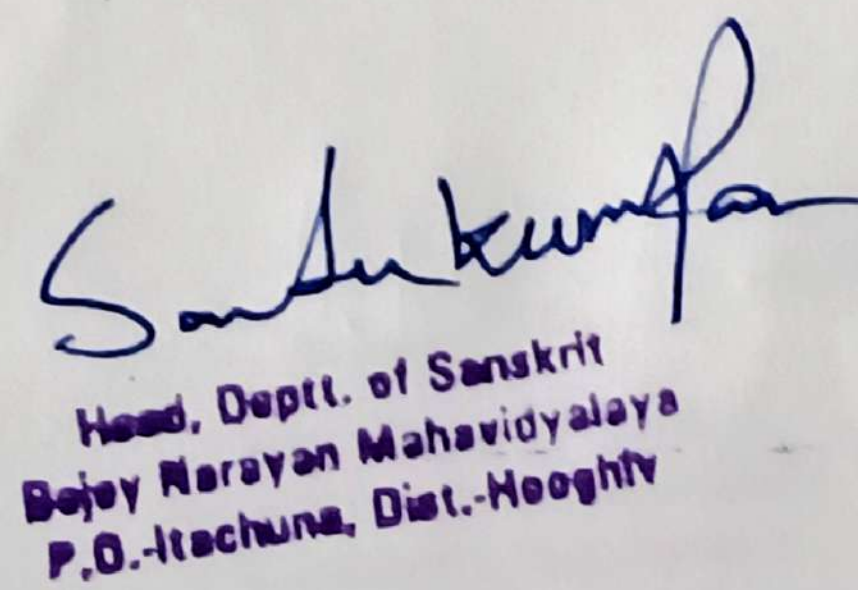 Santu Kumar Pan
Head, Deptt. of Sanskrit
Bejoy Narayan Mahavidyalaya
P.O.-Itachuna, Dist.-Hooghly